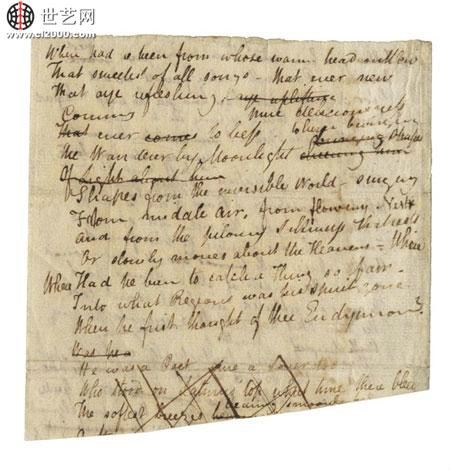 世艺网
www.cl2000.com
When had he been from whose warm head outflew
That sweetest of all songs - that ever new
That aye refreshing,
Coming pure deliciousness
that ever come to bless
The Wanderer by Moonlight
Of Light about him
Shapes from the invisible World
From middle air, from flowery Nests
And from the pillowy silkiness that rests
Or slowly moves about the Heavens - Where
Where Had he been to catch a thing so fair -
Into what Regions was his spirit gone
When he first thought of thee Endymion?
Was he
He was a Poet
Who stood on Latmus top what time there blew
The softest breezes